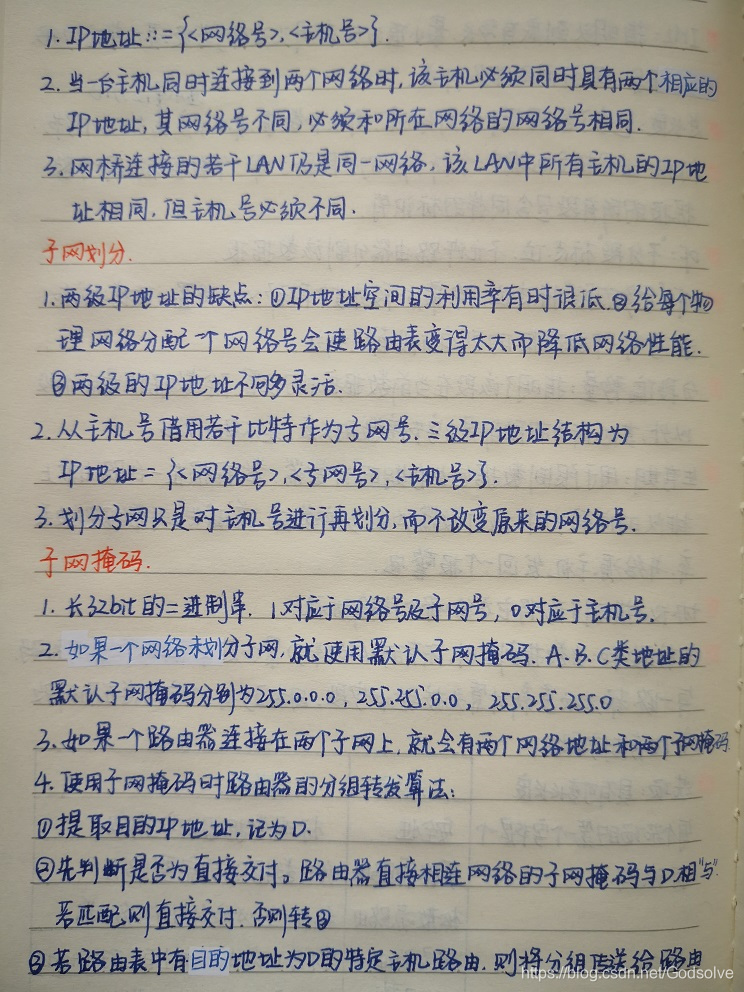 1. IP地址::={<网络号>,<主机号>}.
2. 当一台主机同时连接到两个网络时,该主机必须同时具有两个相应的
IP地址,其网络号不同,必须和所在网络的网络号相同.
3. 网桥连接的若干LAN仍是同一网络,该LAN中所有主机的IP地
址相同,但主机号必须不同.
子网划分.
1. 两级IP地址的缺点:①IP地址空间的利用率有时很低.②给每个物
理网络分配一个网络号会使路由表变得太大而降低网络性能.
③两级的IP地址不够灵活.
2. 从主机号借用若干比特作为子网号.三级IP地址结构为
IP地址={<网络号>,<子网号>,<主机号>}.
3. 划分子网只是对主机号进行再划分,而不改变原来的网络号.
子网掩码.
1. 长32bit的二进制串. 1对应于网络号及子网号,0对应于主机号.
2. 如果一个网络未划分子网,就使用默认子网掩码. A.B.C类地址的
默认子网掩码分别为255.0.0.0, 255.255.0.0, 255.255.255.0
3. 如果一个路由器连接在两个子网上,就会有两个网络地址和两个子网掩码
4. 使用子网掩码时路由器的分组转发算法:
①提取目的IP地址,记为D.
②先判断是否为直接交付。路由器直接相连网络的子网掩码与D相"与".
若匹配则直接交付.否则转③
③若路由表中有目的地址为D的特定主机路由.则将分组传送给路由
https://blog.csdn.net/Godsolve